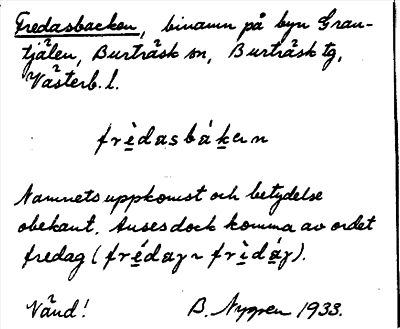 Fredasbacken, binamn på byn Gran-
tjälen, Burträsk sn, Burträsk tg,
Västerb. l.
frèdasbákern
Namnets uppkomst och betydelse
obekant. Anses dock komma av ordet
fredag (frédaz ~ frìdáz).
Vänd! B. Nygren 1933.